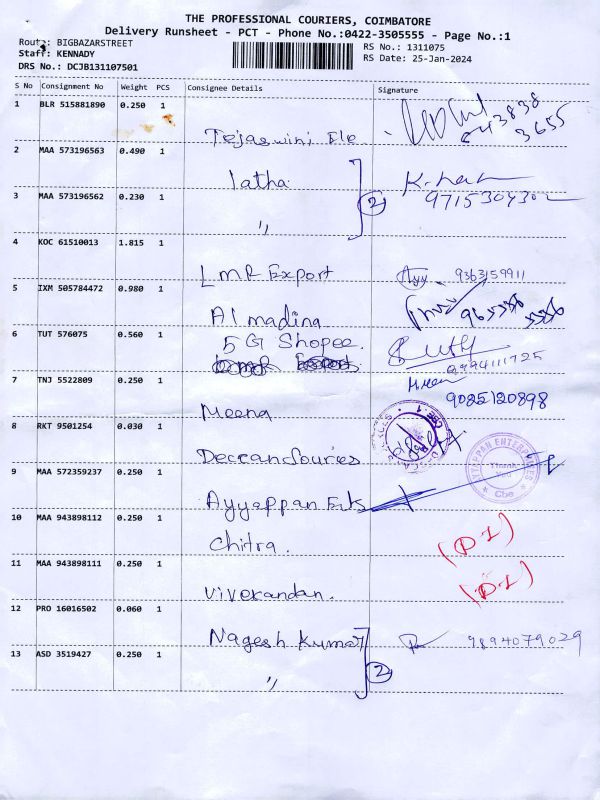 THE PROFESSIONAL COURIERS, COIMBATORE
Delivery Runsheet - PCT - Phone No.:0422-3505555 - Page No.:1
Route: BIGBAZARSTREET
RS No.: 1311075
Staff: KENNADY
RS Date: 25-Jan-2024
DRS No.: DCJB131107501
S No Consignment No Weight PCS Consignee Details Signature
1 BLR 515881890 0.250 1
Tejaswini Ele
3655
2 MAA 573196563 0.490 1
latha
2
9715304302
3 MAA 573196562 0.230 1
"
4 KOC 61510013 1.815 1
LMR Export
9363159911
5 IXM 505784472 0.980 1
Al madina
6 TUT 576075 0.560 1
5 G Shopee.
9994111725
7 TNJ 5522809 0.250 1
Meena
9025120898
8 RKT 9501254 0.030 1
9 MAA 572359237 0.250 1
AYYAPPAN ENTERPRISES
Thank You
Cbe
Ayyappan Ents
10 MAA 943898112 0.250 1
Chitra.
(D.L)
11 MAA 943898111 0.250 1
Vivekandan.
(D.L)
12 PRO 16016502 0.060 1
Nagesh Kumar
2
9894079029
13 ASD 3519427 0.250 1
"